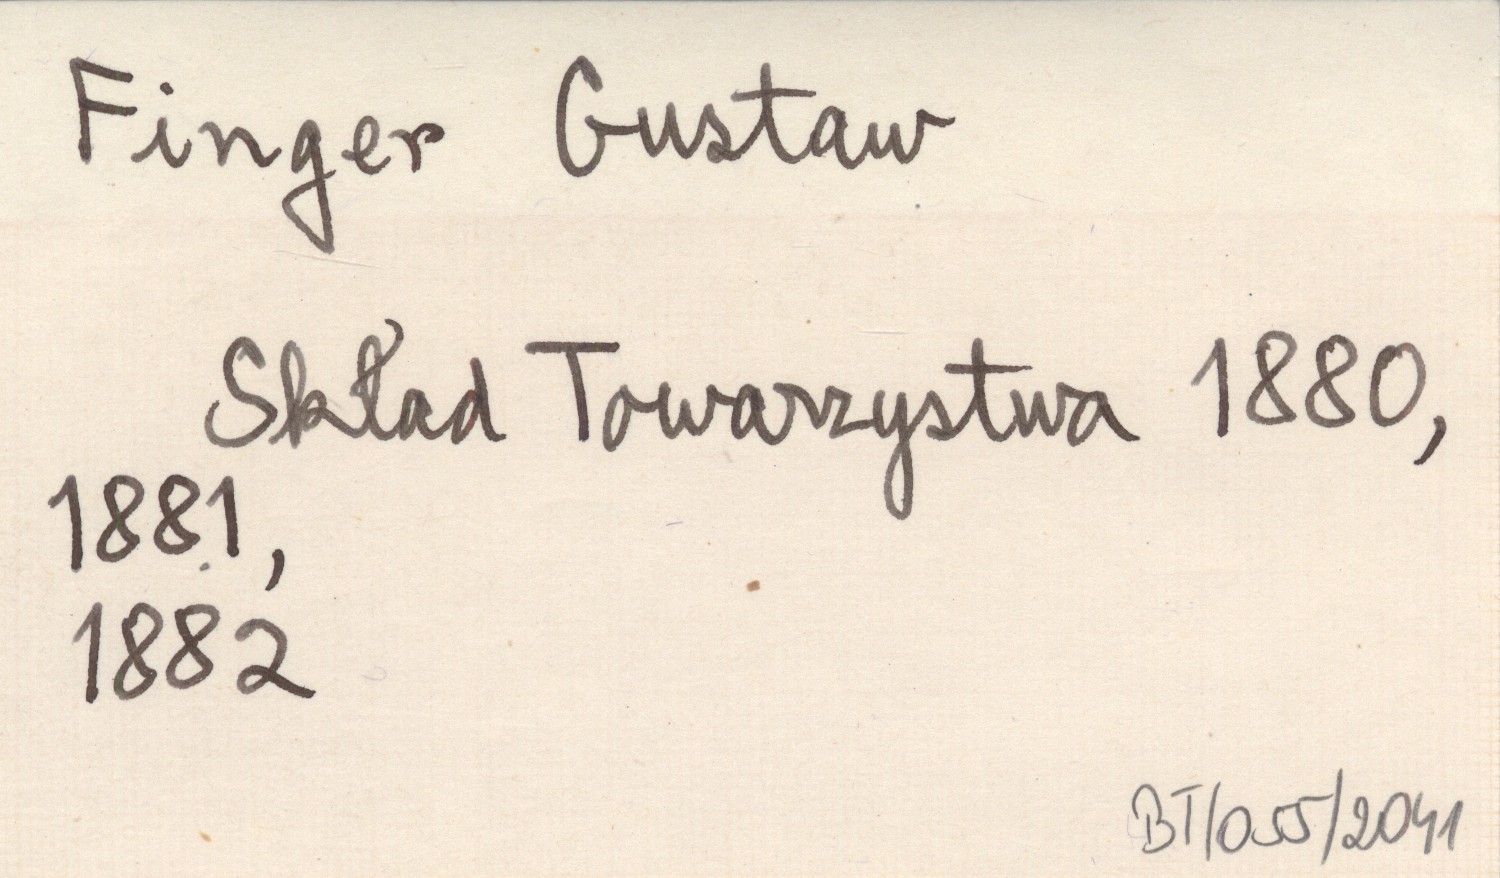 Finger Gustaw
Skład Towarzystwa 1880,
1881,
1882
BT/055/2041